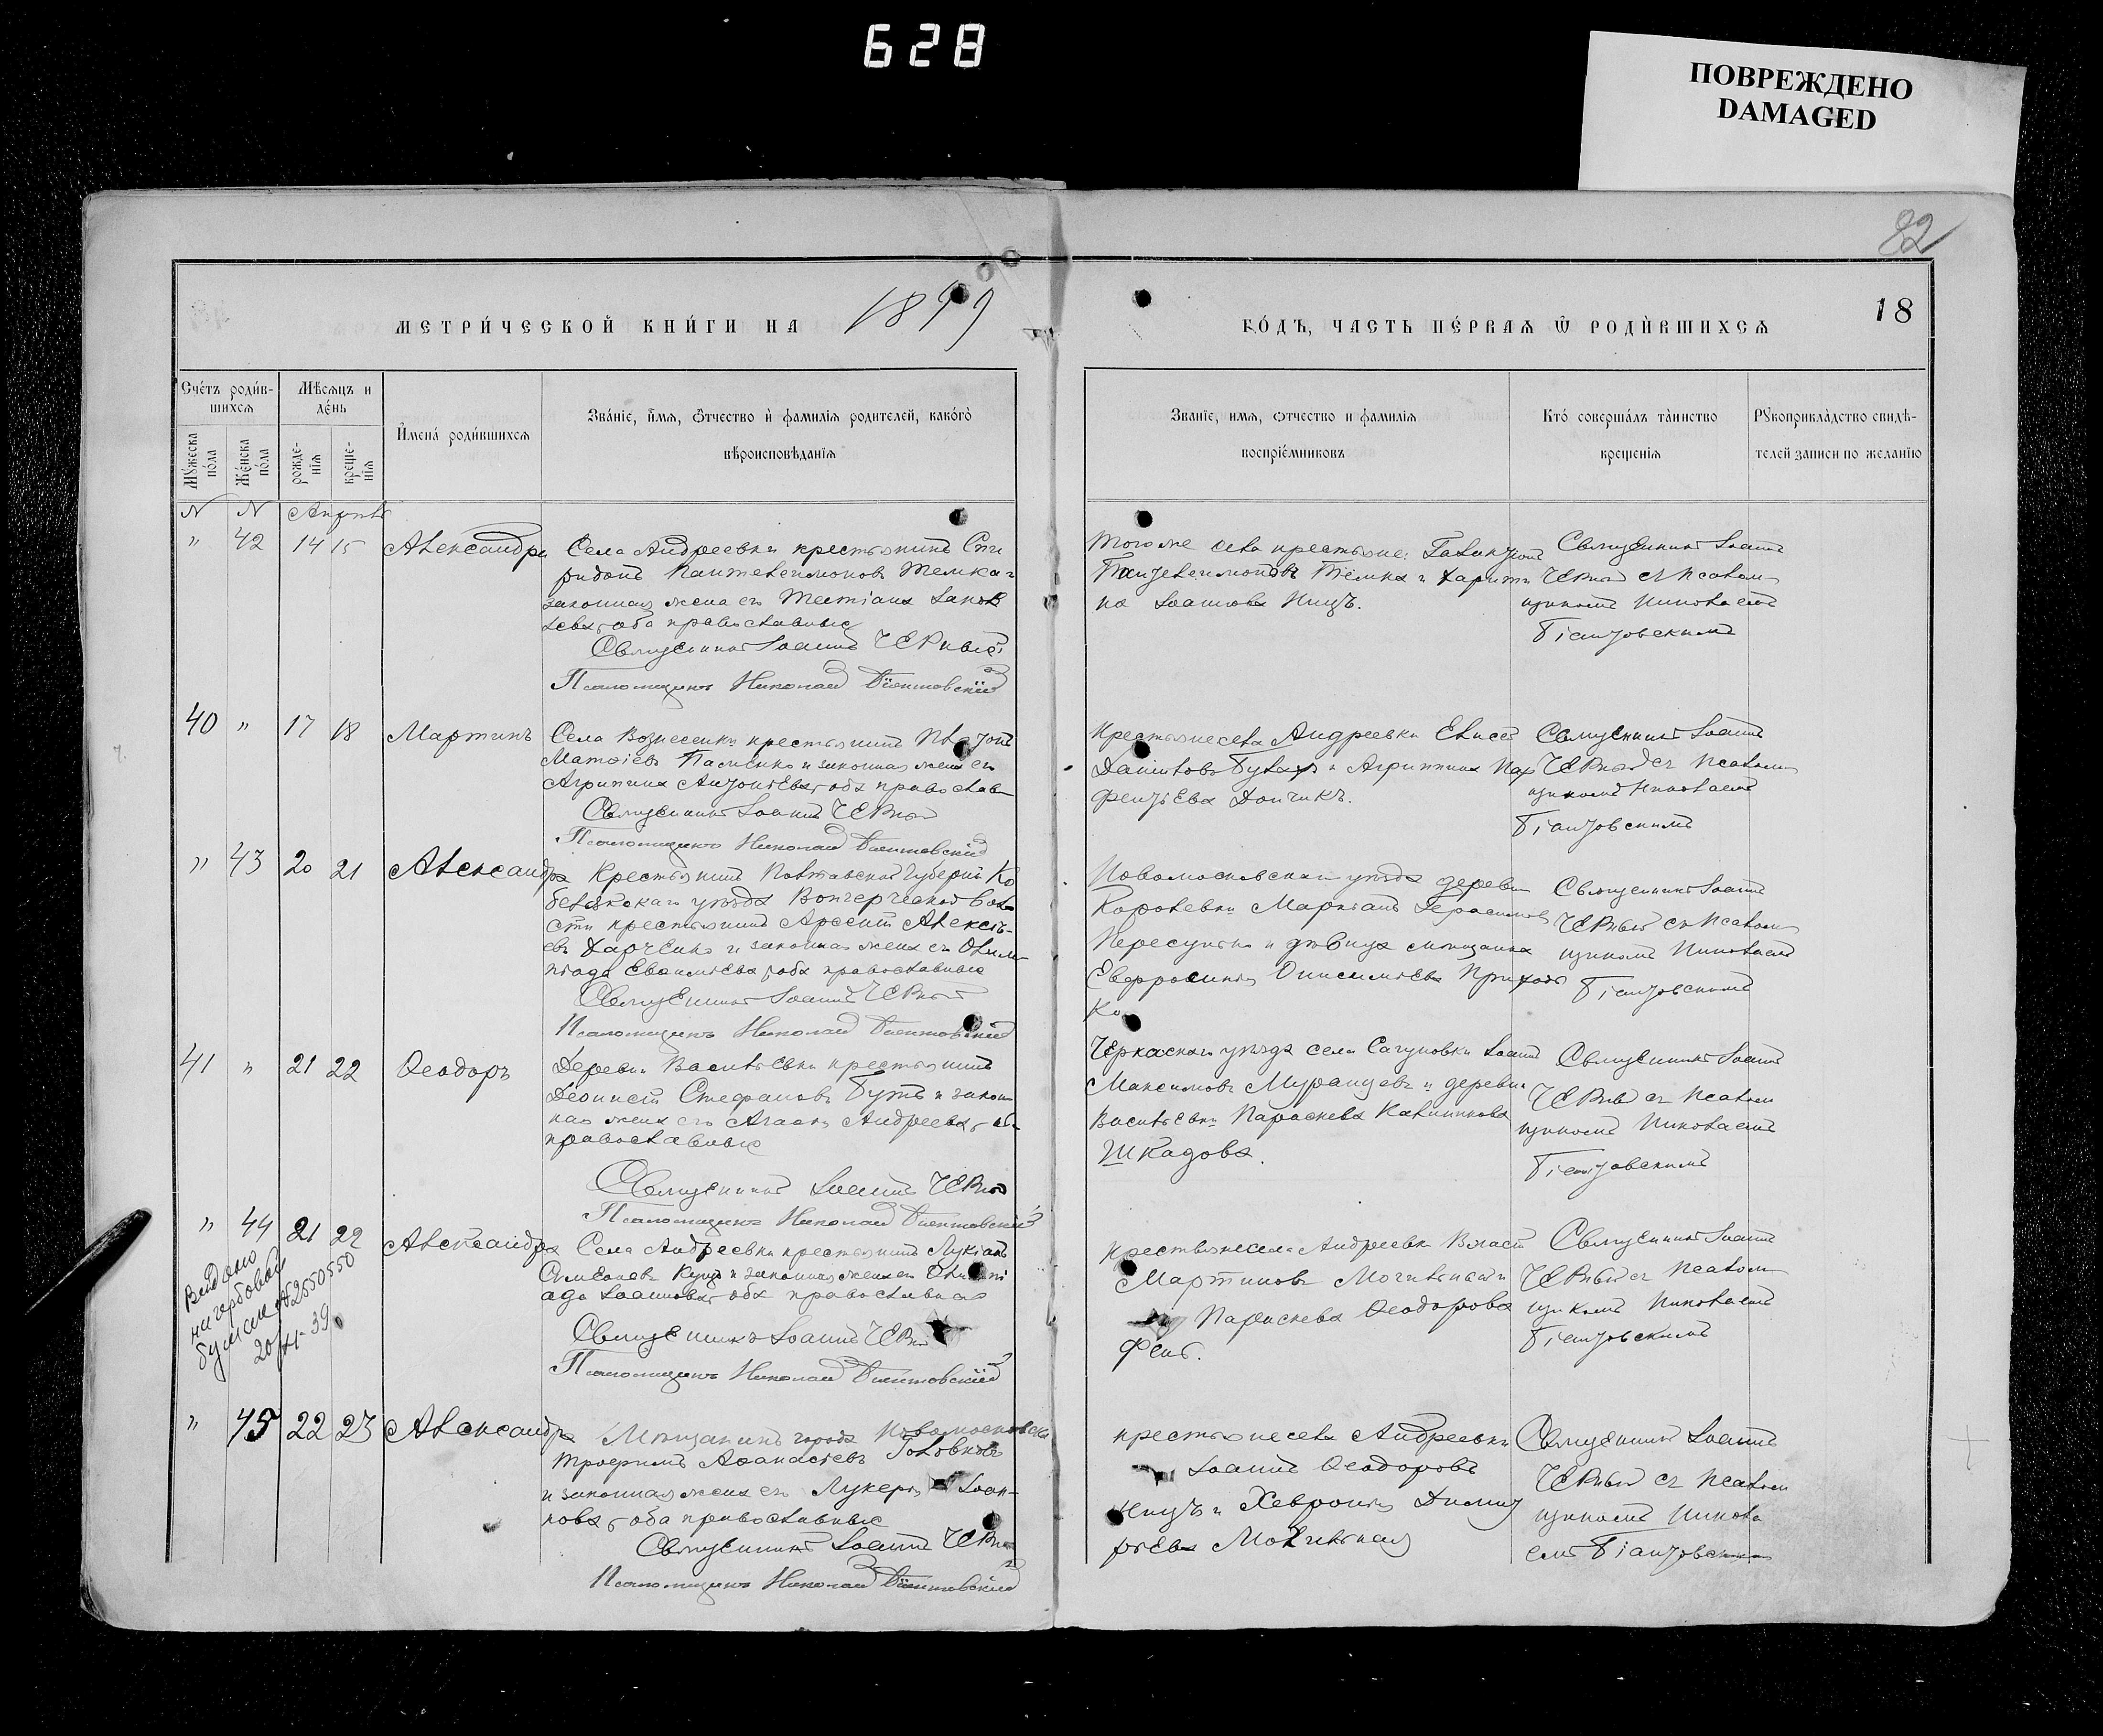 628
ПОВРЕЖДЕНО
DAMAGED
82
МЕТРИ́ЧЕСКОЙ КНИ́ГИ НА 1899
ГО́ДЪ, ЧАСТЬ ПЕ́РВАѦ Ѿ РОДИ́ВШИХСѦ
18
Сче́тъ роди́в-
шихсѧ
Мꙋ́жеска
по́ла
Же́нска
по́ла
Мѣ́сѧцъ и
де́нь
рожде-
нїѧ
креще-
нїѧ
И҆мена́ роди́вшихсѧ
Зва́нїе, и҆́мѧ, ѻ҆́тчество и҆ фами́лїѧ родителей, како́гѡ
вѣроисповѣ́данїѧ
Зва́нїе, имѧ, ѻтчество и фамилїѧ
воспрїе́мниковъ
Кто́ соверша́лъ та́инство
крещенїѧ
Рꙋкоприкла́дство свидѣ-
телей записи по жела́нїю
N N Апрѣль
" 42 14 15 Александра
Села Андреевки крестьянинъ Спи
ридонъ Пантелеимоновъ Темка и
законная жена его Татіана Іаков
лева, оба православные
Священникъ Іоаннъ Черный
Псаломщикъ Николай Піонтовскій
Того же села крестьяне:
Пантелеимоновъ Темка и Харити
на Іоаннова Ницъ.
Священникъ Іоаннъ
Черный съ псалом
щикомъ Николаемъ
Піонтовскимъ
40 " 17 18 Мартинъ
Села Вознесенки крестьянинъ Платонъ
Матѳіевъ Пасленко и законная жена его
Агрипина Антоніева, оба православ
Священникъ Іоаннъ Черный
Псаломщикъ Николай Піонтовскій
Крестьяне села Андреевки Елисей
Даніиловъ и Агрипина Пар
фентіева Дончикъ.
Священникъ Іоаннъ
Черный съ псалом
щикомъ Николаемъ
Піонтовскимъ
" 43 20 21 Александра
Крестьянинъ Полтавской губерніи Ко
белякскаго уѣзда воло
сти крестьянинъ Арсеній Алексѣ-
евъ Харченко и законная жена его Олим
піада Евѳиміева, оба православные
Священникъ Іоаннъ Черный
Псаломщикъ Николай Піонтовскій
Новомосковскаго уѣзда деревни
Королевки Маркіанъ Герасимовъ
Пересунько и дѣвица мѣщанка
Евфросинія Онисимовна Приходь
ко
Священникъ Іоаннъ
Черный съ псалом
щикомъ Николаемъ
Піонтовскимъ
41 " 21 22 Ѳеодоръ
Деревни Васильевки крестьянинъ
Леонисій Стефановъ Бутъ и закон
ная жена его Агаѳія Андреева, оба
православные
Священникъ Іоаннъ Черный
Псаломщикъ Николай Піонтовскій
Черкаскаго уѣзда села Сагуновки Іоаннъ
Максимовъ Муранцевъ и деревни
Васильевки Параскева Калиникова
Шкадова.
Священникъ Іоаннъ
Черный съ псалом
щикомъ Николаемъ
Піонтовскимъ
" 44 21 22 Александра
Выдано
на гербовой
бумаге № 2550550
20/XI-39
Села Андреевки крестьянинъ Лукіанъ
Симеоновъ Куцъ и законная жена его Олимпі
ада Іоаннова, оба православные
Священникъ Іоаннъ Черный
Псаломщикъ Николай Піонтовскій
Крестьяне села Андреевки Власій
Мартиновъ Могильный и
Параскева Ѳеодорова
Фень.
Священникъ Іоаннъ
Черный съ псалом
щикомъ Николаемъ
Піонтовскимъ
" 45 22 23 Александра
Мѣщанинъ города Новомосковска
Трофимъ Аѳанасіевъ Головковъ
и законная жена его Лукерія Іоан-
нова, оба православные
Священникъ Іоаннъ Черный
Псаломщикъ Николай Піонтовскій
Крестьяне села Андреевки
Іоаннъ Ѳеодоровъ
Ницъ и Хевронія Дими
ріева Могильная
Священникъ Іоаннъ
Черный съ псалом
щикомъ Никола
емъ Піонтовскимъ